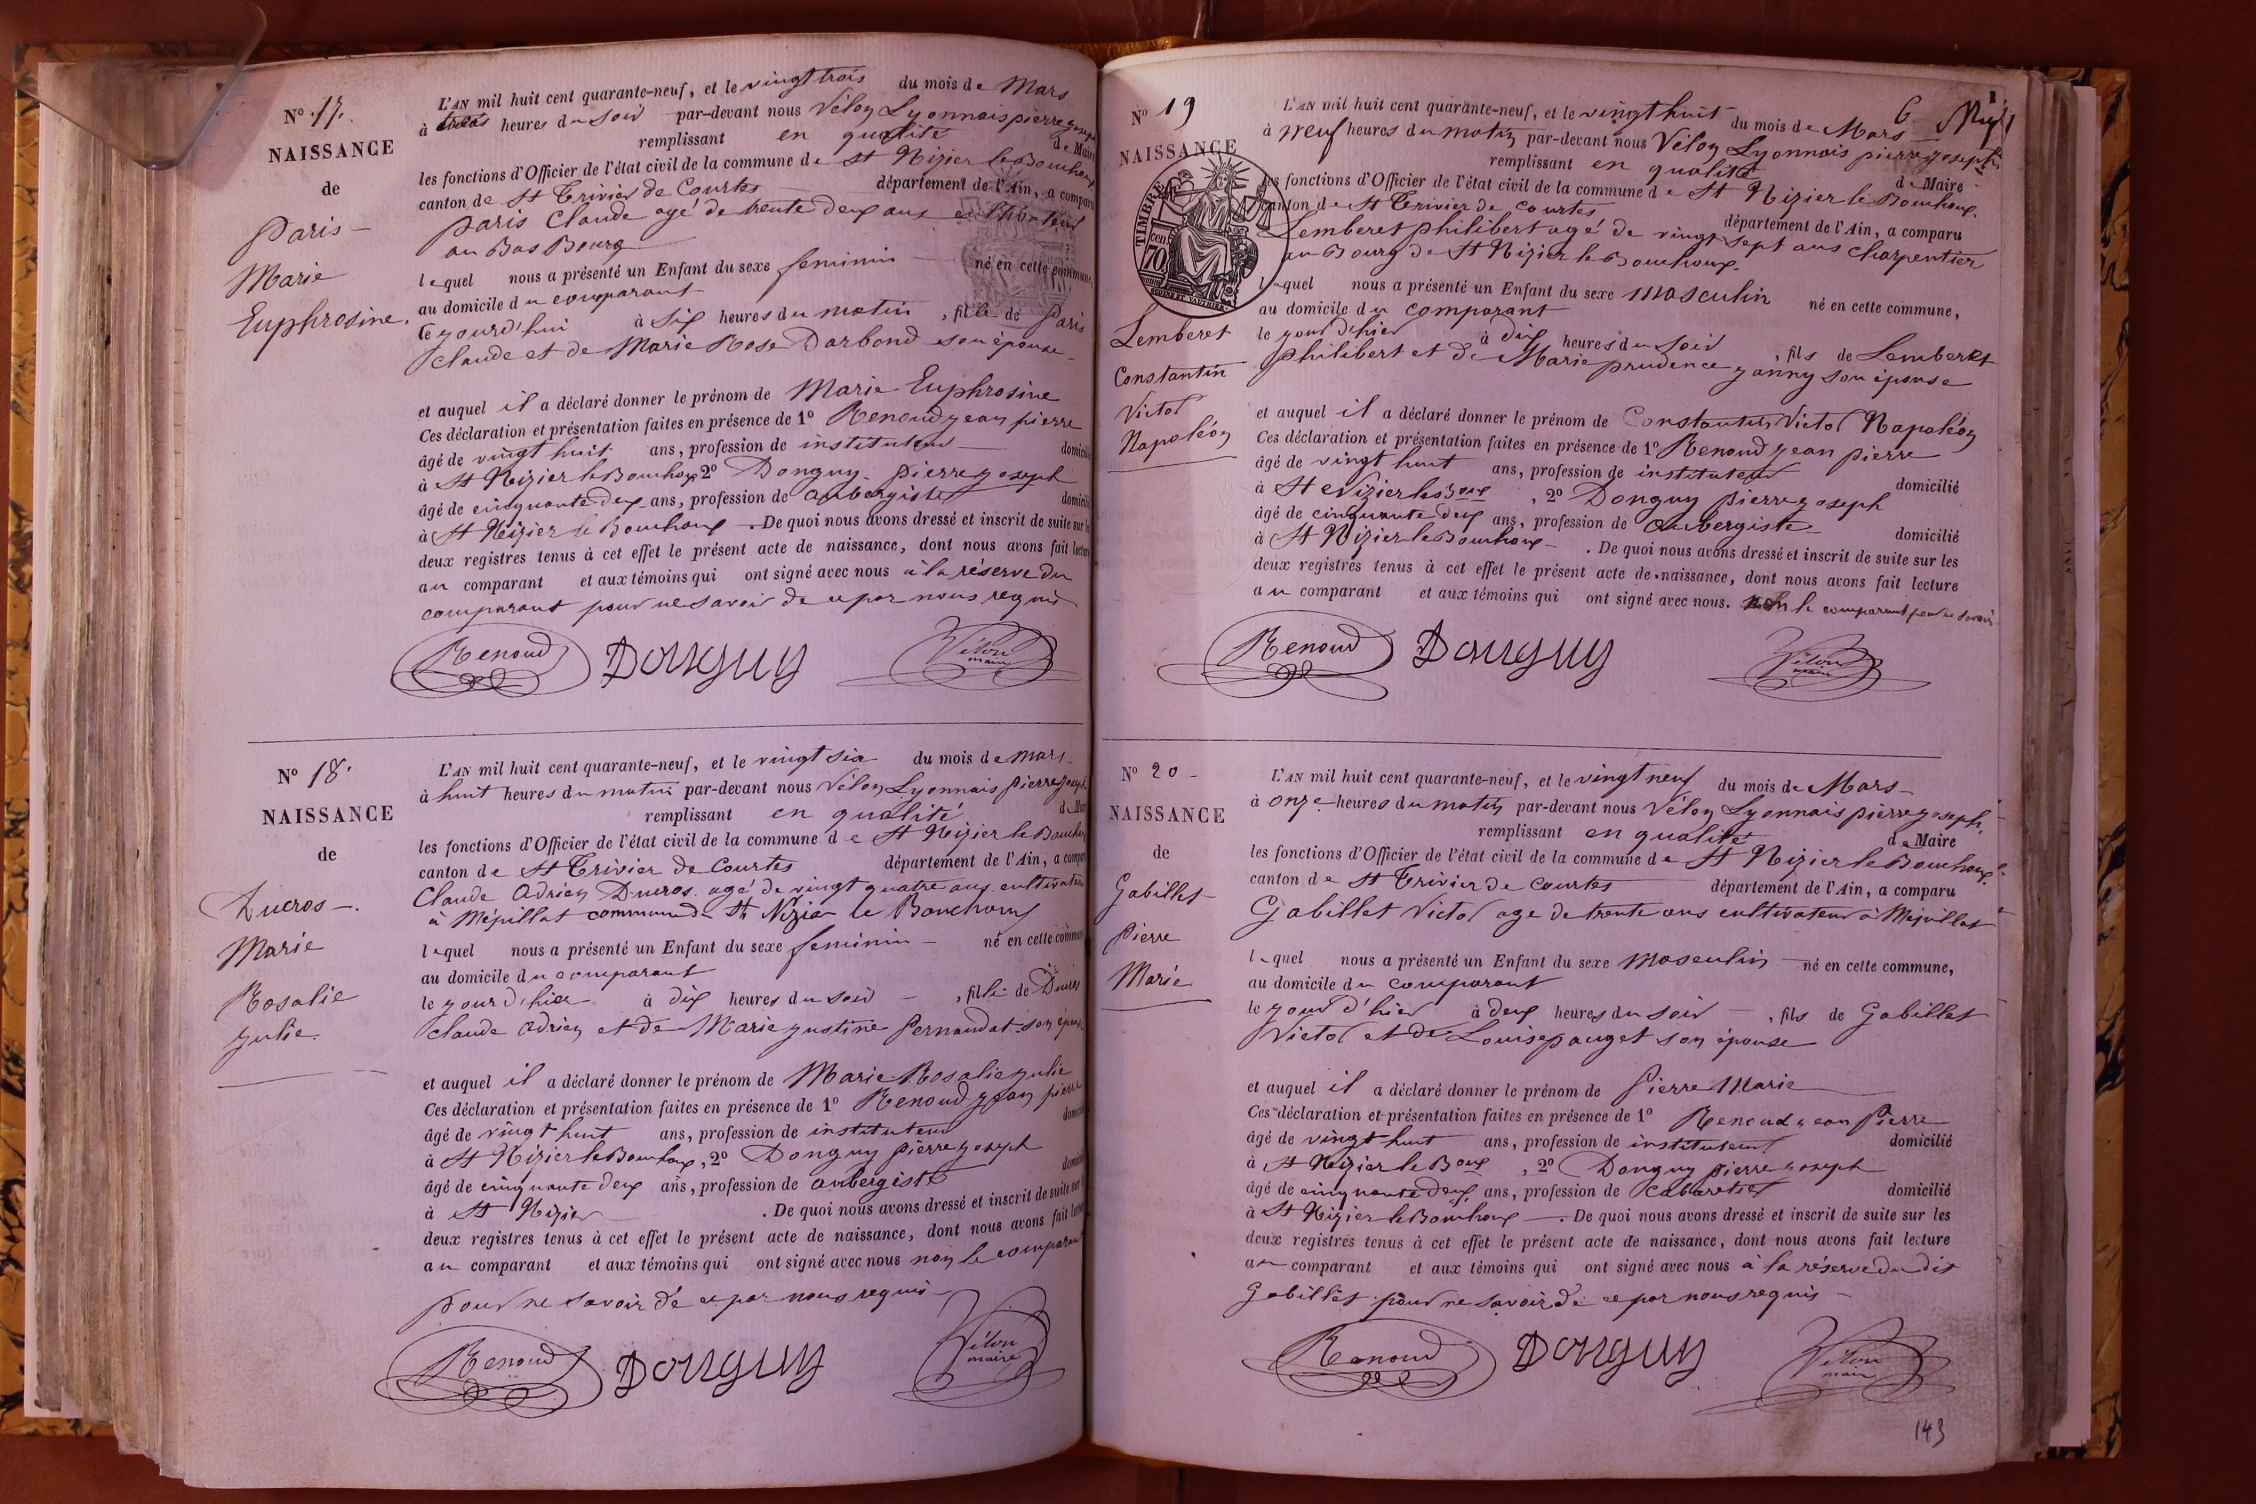 Nº 17.
NAISSANCE
de
Paris
Marie
Euphrosine.
L'AN mil huit cent quarante-neuf, et le vingt trois du mois de Mars
à trois heures du soir par-devant nous Vélon Lyonnais pierre joseph
remplissant en qualité de Maire
les fonctions d'Officier de l'état civil de la commune de St Nizier le Bouhoux
canton de St Trivier de Courtes département de l'Ain, a comparu
Paris Claude agé de trente deux ans
au Bas Bourg
lequel nous a présenté un Enfant du sexe feminin né en cette commune,
au domicile du comparant
le jourd'hui à six heures du matin, fille de Paris
Claude et de Marie Rose Darbond son épouse
et auquel il a déclaré donner le prénom de Marie Euphrosine
Ces déclaration et présentation faites en présence de 1º Renoud jean pierre
âgé de vingt huit ans, profession de instituteur domicilié
à St Nizier le Bouhoux 2º Donguy pierre joseph
âgé de cinquante deux ans, profession de aubergiste domicilié
à St Nizier le Bouhoux. De quoi nous avons dressé et inscrit de suite sur les
deux registres tenus à cet effet le présent acte de naissance, dont nous avons fait lecture
au comparant et aux témoins qui ont signé avec nous à la réserve du
comparant pour ne savoir de ce par nous requis
Renoud Donguy Vélon maire
Nº 18.
NAISSANCE
de
Ducros
Marie
Rosalie
julie.
L'AN mil huit cent quarante-neuf, et le vingt six du mois de Mars
à huit heures du matin par-devant nous Vélon Lyonnais pierre joseph
remplissant en qualité de Maire
les fonctions d'Officier de l'état civil de la commune de St Nizier le Bouhoux
canton de St Trivier de Courtes département de l'Ain, a comparu
Claude Adrien Ducros agé de vingt quatre ans cultivateur
à Mépillat commune de St Nizier le Bouchoux
lequel nous a présenté un Enfant du sexe feminin né en cette commune
au domicile du comparant
le jour d'hier à dix heures du soir, fille de Ducros
Claude Adrien et de Marie justine Pernaudat son épouse
et auquel il a déclaré donner le prénom de Marie Rosalie julie
Ces déclaration et présentation faites en présence de 1º Renoud jean pierre
âgé de vingt huit ans, profession de instituteur domicilié
à St Nizier le Bouhoux, 2º Donguy pierre joseph
âgé de cinquante deux ans, profession de aubergiste domicilié
à St Nizier. De quoi nous avons dressé et inscrit de suite sur les
deux registres tenus à cet effet le présent acte de naissance, dont nous avons fait lecture
au comparant et aux témoins qui ont signé avec nous non le comparant
pour ne savoir de ce par nous requis
Renoud Donguy Vélon maire
6
Nº 19
NAISSANCE
TIMBRE
70 cen
Lemberet
Constantin
Victor
Napoléon
L'AN mil huit cent quarante-neuf, et le vingt huit du mois de Mars
à neuf heures du matin par-devant nous Vélon Lyonnais pierre joseph
remplissant en qualité de Maire
les fonctions d'Officier de l'état civil de la commune de St Nizier le Bouhoux
canton de St Trivier de courtes département de l'Ain, a comparu
Lemberet philibert agé de vingt sept ans charpentier
au Bourg de St Nizier le Bouchoux.
lequel nous a présenté un Enfant du sexe masculin né en cette commune,
au domicile du comparant
le jour d'hier à dix heures du soir, fils de Lemberet
philibert et de Marie prudence janny son épouse
et auquel il a déclaré donner le prénom de Constantin Victor Napoléon
Ces déclaration et présentation faites en présence de 1º Renoud jean pierre
âgé de vingt huit ans, profession de instituteur domicilié
à St Nizier le Boux, 2º Donguy pierre joseph
âgé de cinquante deux ans, profession de aubergiste domicilié
à St Nizier le Bouhoux. De quoi nous avons dressé et inscrit de suite sur les
deux registres tenus à cet effet le présent acte de naissance, dont nous avons fait lecture
au comparant et aux témoins qui ont signé avec nous. non le comparant pour ne savoir
Renoud Donguy Vélon maire
Nº 20
NAISSANCE
de
Gabillet
Pierre
Marie
L'AN mil huit cent quarante-neuf, et le vingt neuf du mois de Mars
à onze heures du matin par-devant nous Vélon Lyonnais pierre joseph
remplissant en qualité de Maire
les fonctions d'Officier de l'état civil de la commune de St Nizier le Bouhoux
canton de St Trivier de courtes département de l'Ain, a comparu
Gabillet Victor age de trente ans cultivateur à Mépillat
lequel nous a présenté un Enfant du sexe masculin né en cette commune,
au domicile du comparant
le jour d'hier à deux heures du soir, fils de Gabillet
Victor et de Louise pauget son épouse
et auquel il a déclaré donner le prénom de Pierre Marie
Ces déclaration et présentation faites en présence de 1º Renoud jean Pierre
âgé de vingt huit ans, profession de instituteur domicilié
à St Nizier le Boux, 2º Donguy pierre joseph
âgé de cinquante deux ans, profession de cabaretier domicilié
à St Nizier le Bouhoux. De quoi nous avons dressé et inscrit de suite sur les
deux registres tenus à cet effet le présent acte de naissance, dont nous avons fait lecture
au comparant et aux témoins qui ont signé avec nous à la réserve du dit
Gabillet pour ne savoir de ce par nous requis
Renoud Donguy Vélon maire
143